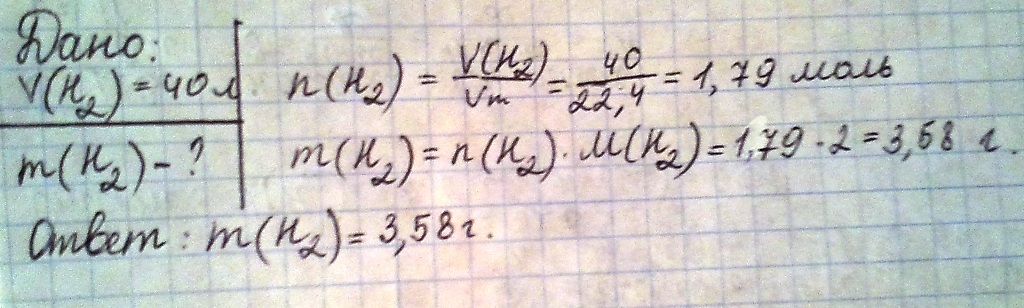 Дано:
V(H₂) = 40 л
m(H₂) - ?
n(H₂) = V(H₂)/Vm = 40/22,4 = 1,79 моль
m(H₂) = n(H₂) · M(H₂) = 1,79 · 2 = 3,58 г.
Ответ: m(H₂) = 3,58 г.